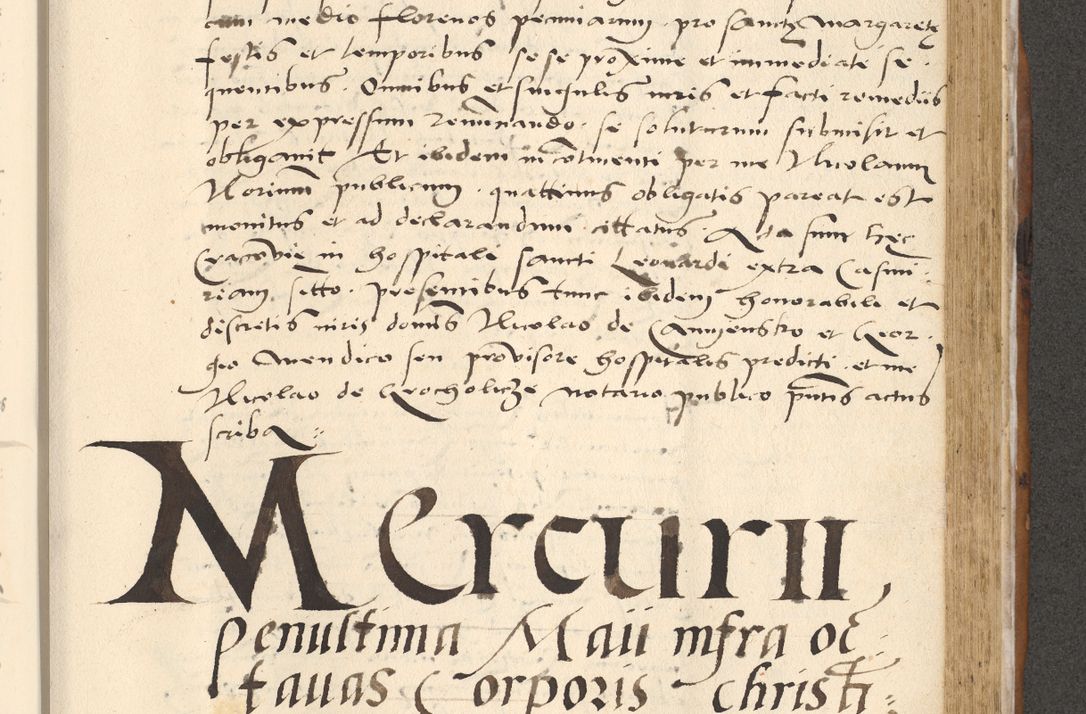 cum medio florenos pecuniarum · pro sanctę Margaretę
festis et temporibus se se proxime et immediate se ·
quentibus · Omnibus et singulis iuris et facti remediis
per expressum renunciando · se soluturum submisit et
obligauit Et ibidem in cōtinenti per me Nicolaum
Norium publicum · quatinus obligatis pareat est
monitus et ad declarandum cittatus · Acta sunt hęc
Cracōvię in hospitali sancti Leonardi extra Casimi ·
riam sitto · presentibus tunc ibidem honorabili et
discretis viris domīs Nicolao de et Geor ·
gio Mendico seu provisore hospitalis predicti · et me
Nicolao de Grocholicze notario publico pn̄tis actus
scriba :
Mercurii
penultima Maii infra oc :
tauas Corporis christi :